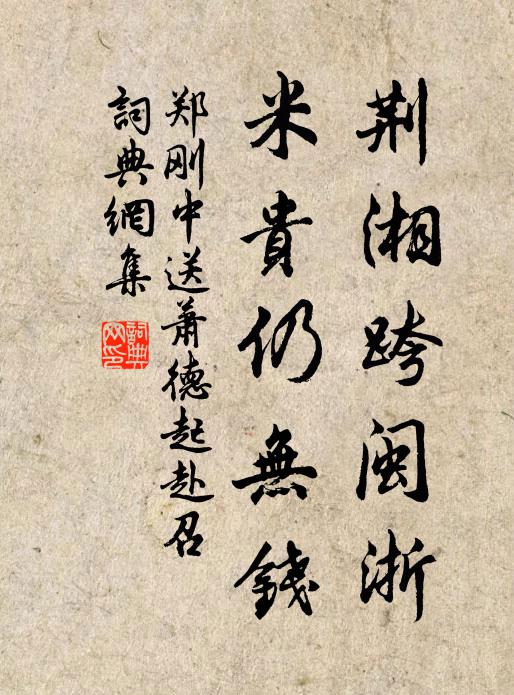 荆湘跨闽浙
米貴仍無錢
郑刚中送萧德起赴召
詞典網集
詞典
网印